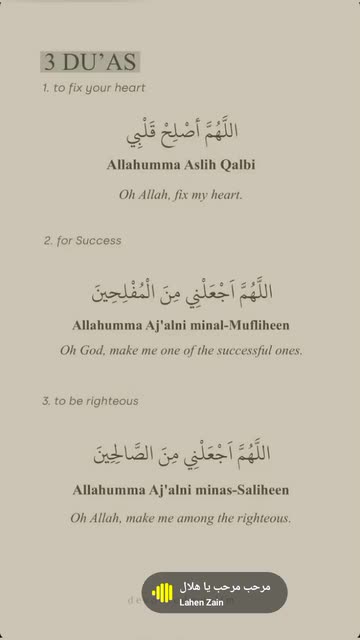 3 DU’AS
1. to fix your heart
اللَّهُمَّ أَصْلِحْ قَلْبِي
Allahumma Aslih Qalbi
Oh Allah, fix my heart.
2. for Success
اللَّهُمَّ اَجْعَلْنِي مِنَ الْمُفْلِحِينَ
Allahumma Aj'alni minal-Mufliheen
Oh God, make me one of the successful ones.
3. to be righteous
اللَّهُمَّ اَجْعَلْنِي مِنَ الصَّالِحِينَ
Allahumma Aj'alni minas-Saliheen
Oh Allah, make me among the righteous.
مرحب مرحب يا هلال
Lahen Zain